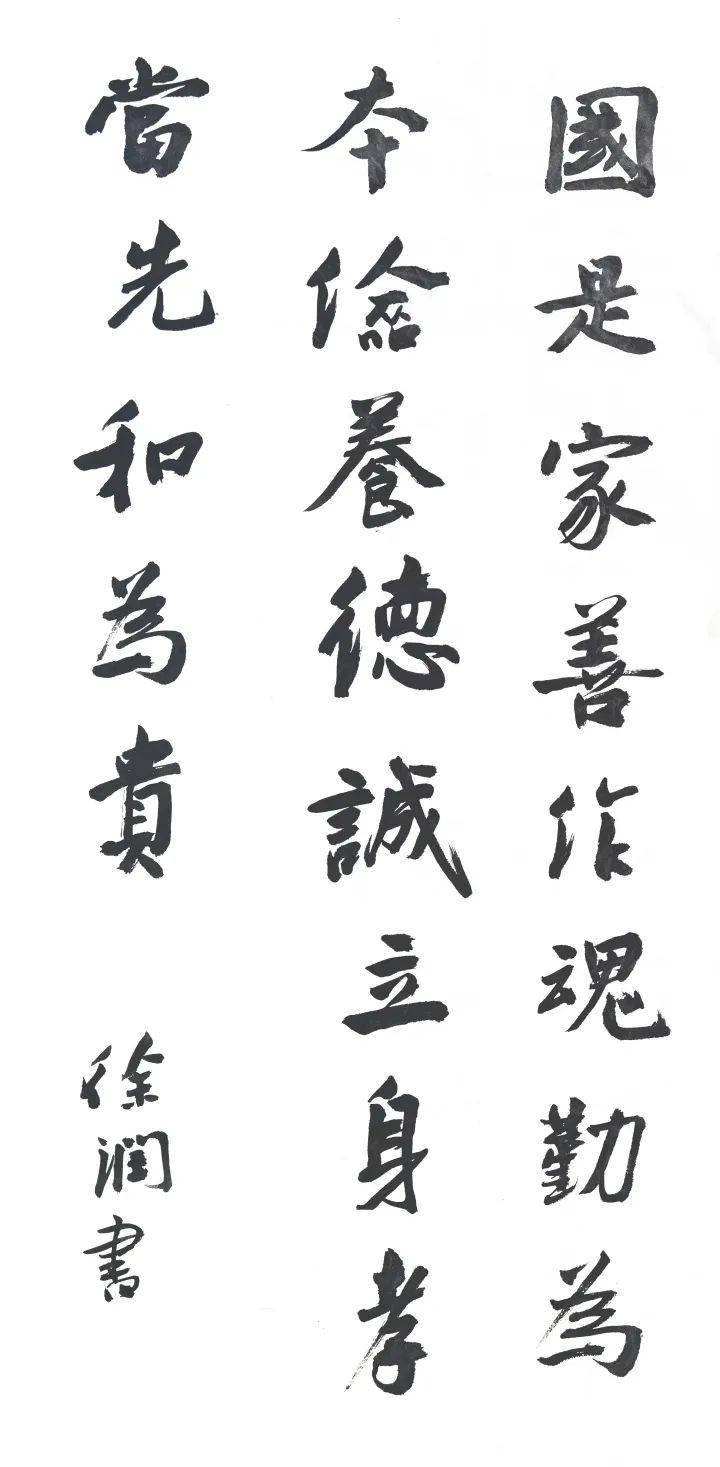 國是家善作魂勤為
本儉養德誠立身孝
當先和為貴
徐潤書